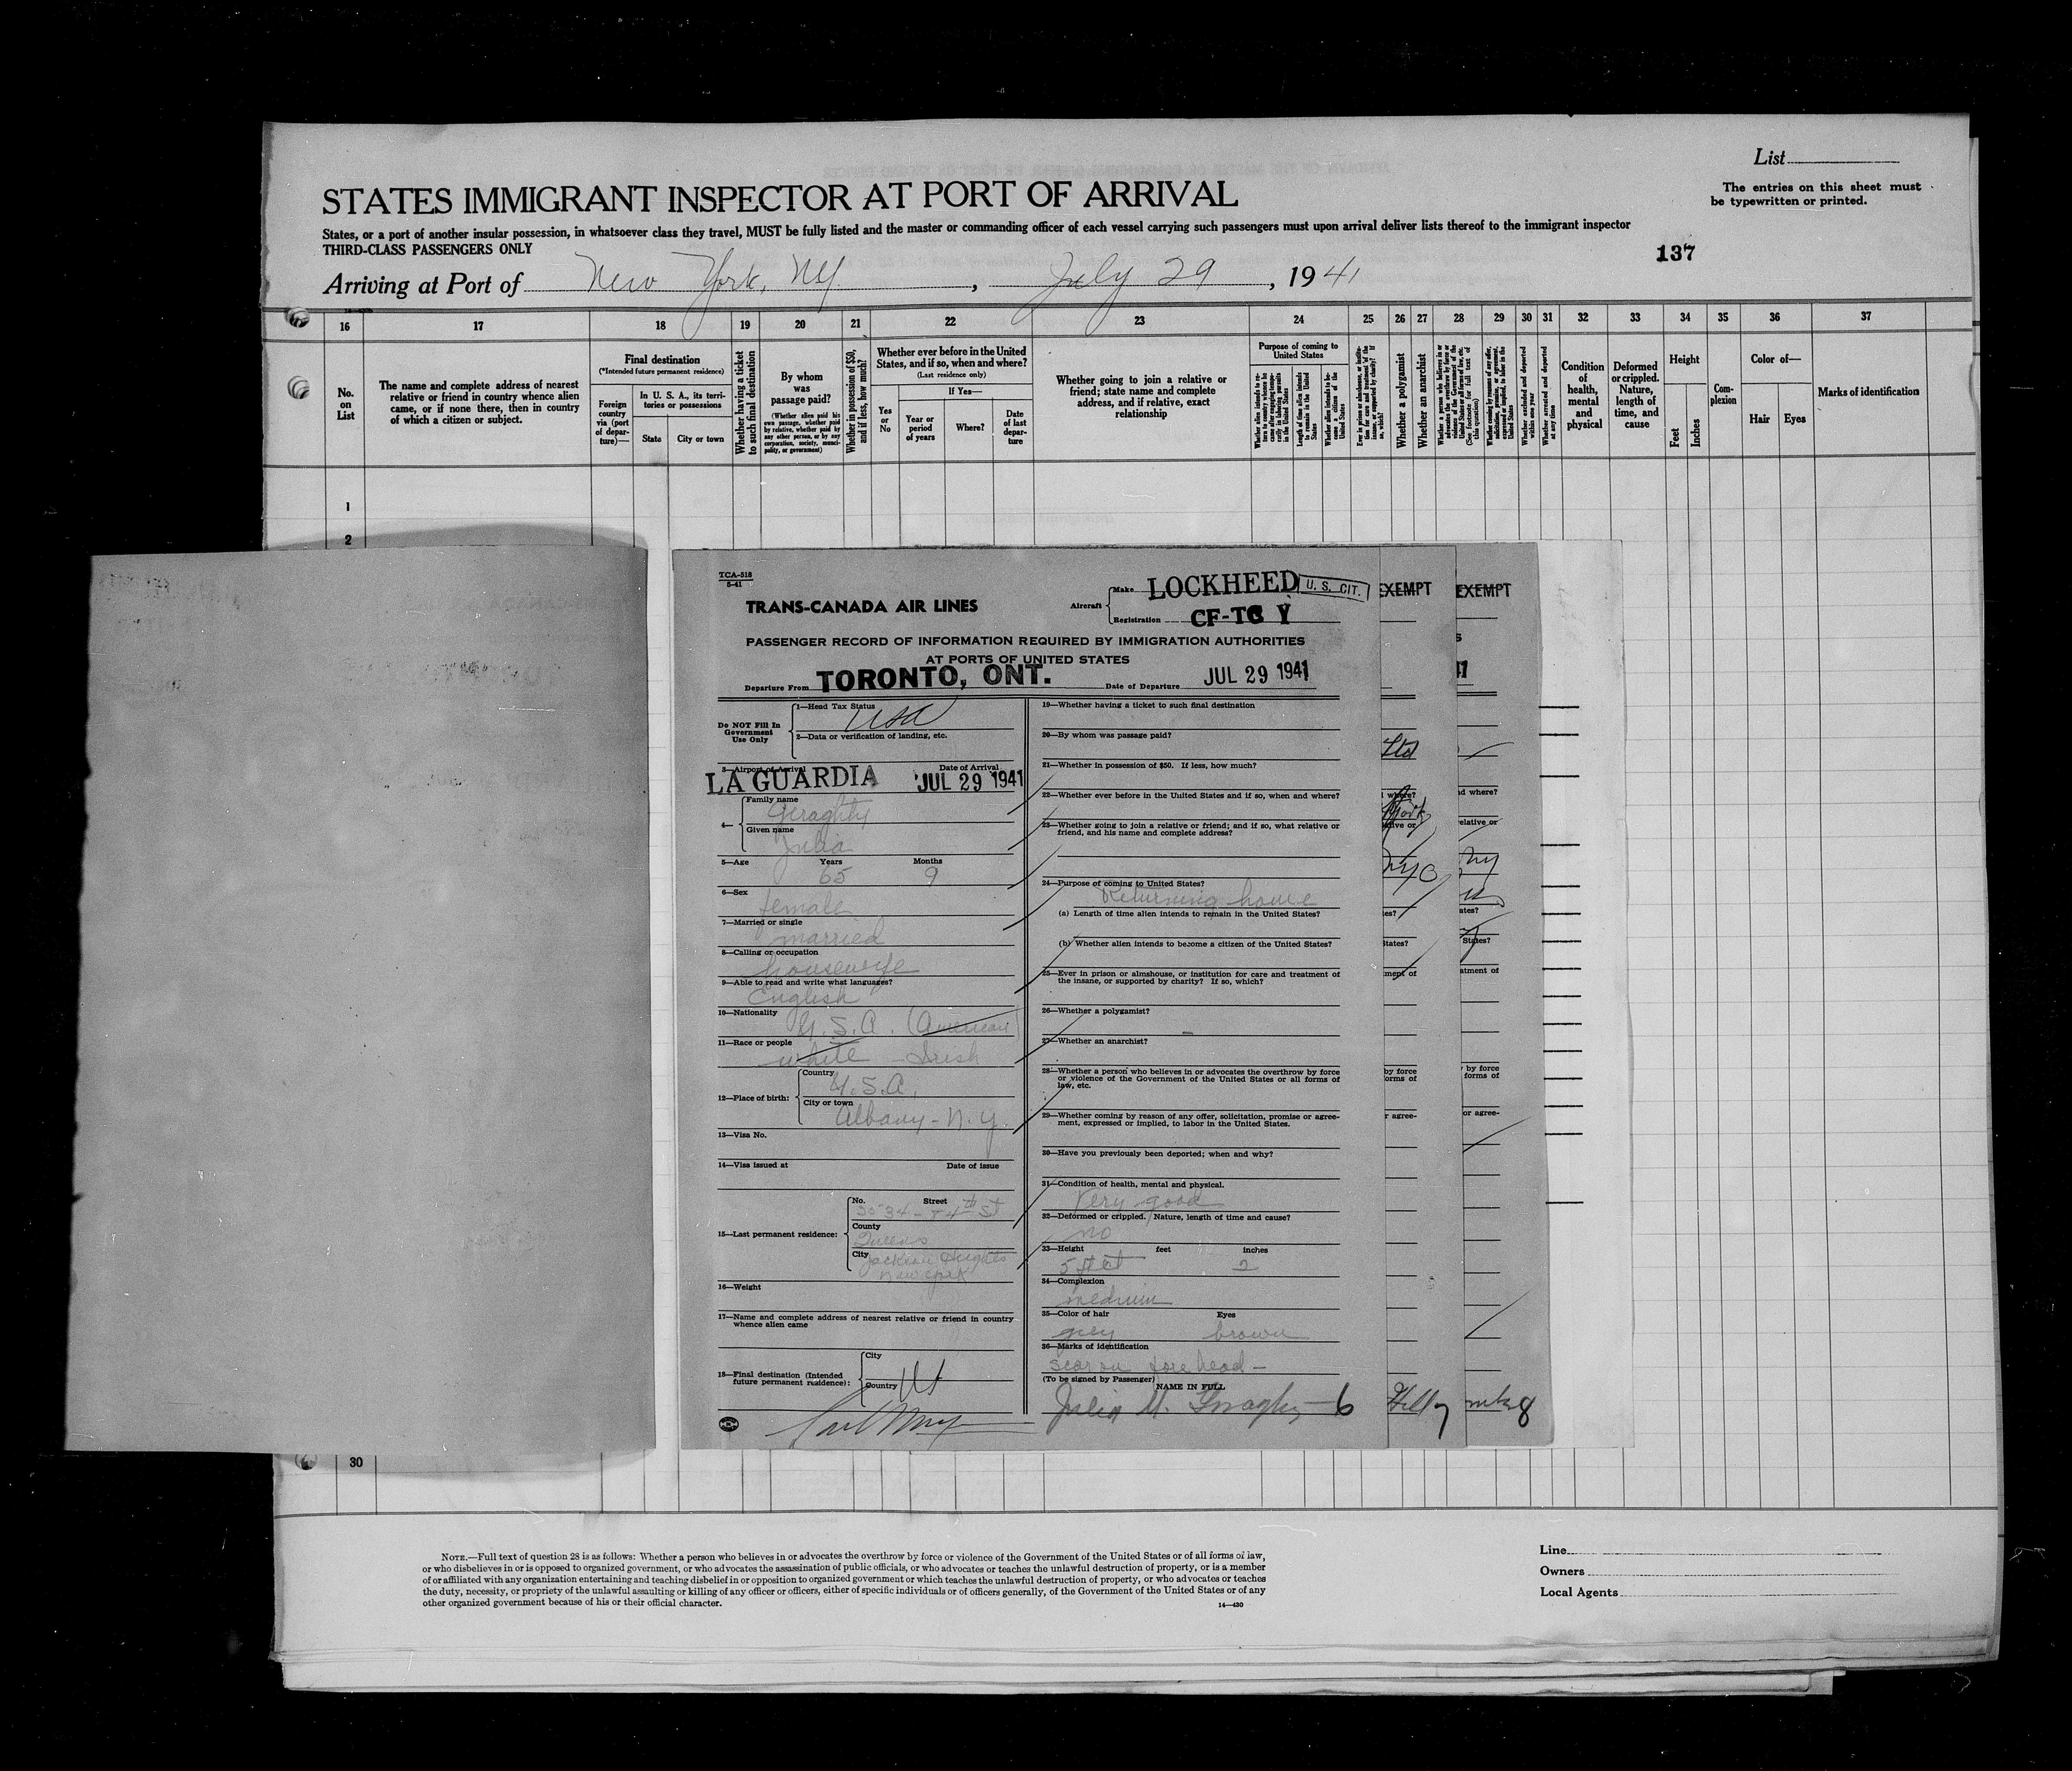 List
The entries on this sheet must
be typewritten or printed.
STATES IMMIGRANT INSPECTOR AT PORT OF ARRIVAL
States, or a port of another insular possession, in whatsoever class they travel, MUST be fully listed and the master or commanding officer of each vessel carrying such passengers must upon arrival deliver lists thereof to the immigrant inspector
THIRD-CLASS PASSENGERS ONLY
137
Arriving at Port of New York, NY. , July 29 , 1941
16 17 18 19 20 21 22 23 24 25 26 27 28 29 30 31 32 33 34 35 36 37
No. on List
The name and complete address of nearest
relative or friend in country whence alien
came, or if none there, then in country
of which a citizen or subject.
Final destination
(*Intended future permanent residence)
Foreign country via (port of departure)—
In U. S. A., its territories or possessions
State
City or town
Whether having a ticket to such final destination
By whom was passage paid?
(Whether alien paid his own passage, whether paid by relative, whether paid by any other person, or by any corporation, society, municipality, or government)
Whether in possession of $50, and if less, how much?
Whether ever before in the United
States, and if so, when and where?
(Last residence only)
Yes or No
If Yes—
Year or period of years
Where?
Date of last departure
Whether going to join a relative or
friend; state name and complete
address, and if relative, exact
relationship
Purpose of coming to
United States
Length of time alien intends to remain in the United States
Whether alien intends to become a citizen of the United States
Whether a polygamist
Whether an anarchist
Whether excluded and deported within one year
Whether arrested and deported at any time
Condition of health, mental and physical
Deformed or crippled. Nature, length of time, and cause
Height
Feet
Inches
Complexion
Color of—
Hair
Eyes
Marks of identification
1
2
TCA-518
5-41
TRANS-CANADA AIR LINES
Aircraft
Make LOCKHEED
U. S. CIT.
Registration CF-TC Y
PASSENGER RECORD OF INFORMATION REQUIRED BY IMMIGRATION AUTHORITIES
AT PORTS OF UNITED STATES
Departure From TORONTO, ONT. Date of Departure JUL 29 1941
Do NOT Fill In
Government
Use Only
1—Head Tax Status USA
2—Data or verification of landing, etc.
3—Airport of Arrival LA GUARDIA Date of Arrival JUL 29 1941
4— Family name Geraghty
Given name Julia
5—Age Years 65 Months 9
6—Sex female
7—Married or single married
8—Calling or occupation housewife
9—Able to read and write what languages? English
10—Nationality U.S.A. (American)
11—Race or people white - Irish
12—Place of birth: Country U.S.A.
City or town Albany - N.Y.
13—Visa No.
14—Visa issued at Date of issue
15—Last permanent residence: No. Street
County Queens
City Jackson Heights
New York
16—Weight
17—Name and complete address of nearest relative or friend in country
whence alien came
18—Final destination (Intended
future permanent residence):
City
Country
19—Whether having a ticket to such final destination
20—By whom was passage paid?
21—Whether in possession of $50. If less, how much?
22—Whether ever before in the United States and if so, when and where?
23—Whether going to join a relative or friend; and if so, what relative or
friend, and his name and complete address?
24—Purpose of coming to United States?
Returning home
(a) Length of time alien intends to remain in the United States?
(b) Whether alien intends to become a citizen of the United States?
25—Ever in prison or almshouse, or institution for care and treatment of
the insane, or supported by charity? If so, which?
26—Whether a polygamist?
27—Whether an anarchist?
28—Whether a person who believes in or advocates the overthrow by force
or violence of the Government of the United States or all forms of
law, etc.
29—Whether coming by reason of any offer, solicitation, promise or agree-
ment, expressed or implied, to labor in the United States.
30—Have you previously been deported; when and why?
31—Condition of health, mental and physical.
Very good
32—Deformed or crippled. Nature, length of time and cause?
no
33—Height feet inches
5 2
34—Complexion
medium
35—Color of hair Eyes
grey brown
36—Marks of identification
scar on forehead -
(To be signed by Passenger) NAME IN FULL
Julia M. Geraghty 6
EXEMPT
EXEMPT
7
8
30
NOTE.—Full text of question 28 is as follows: Whether a person who believes in or advocates the overthrow by force or violence of the Government of the United States or of all forms of law,
or who disbelieves in or is opposed to organized government, or who advocates the assassination of public officials, or who advocates or teaches the unlawful destruction of property, or is a member
of or affiliated with any organization entertaining and teaching disbelief in or opposition to organized government or which teaches the unlawful destruction of property, or who advocates or teaches
the duty, necessity, or propriety of the unlawful assaulting or killing of any officer or officers, either of specific individuals or of officers generally, of the Government of the United States or of any
other organized government because of his or their official character.
14—430
Line
Owners
Local Agents